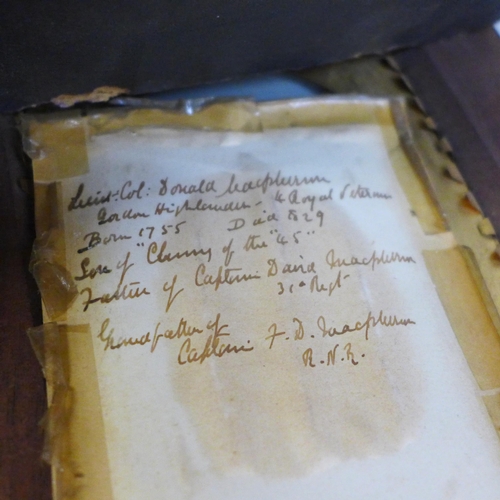 Lieut: Col: Donald Macpherson
Gordon Highlanders - 4 Royal Veteran
Born 1755 Died 1829
Son of "Cluny of the "45"
Father of Captain David Macpherson
Regt
Grandfather of
Captain F. D. Macpherson
R.N.R.